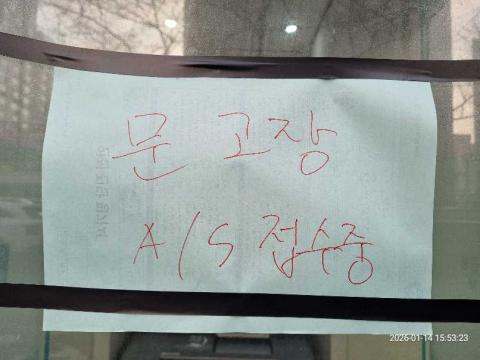 문 고장
A/S 접수중
2026-01-14 15:53:23